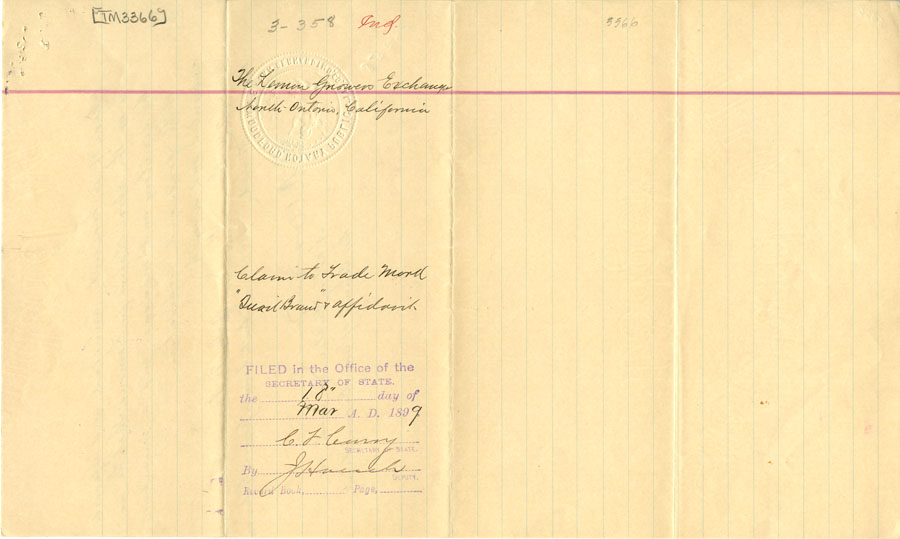 [TM3366]
3-358 Ind.
3366
The Lemon Growers Exchange
North Ontario, California
Claim to Trade Word
"Quail Brand" & affidavit
FILED in the Office of the
SECRETARY OF STATE.
the 18" day of
Mar A. D. 1899
C. F. Curry
SECRETARY OF STATE.
By J Hoesch
DEPUTY.
Record Book, Page,